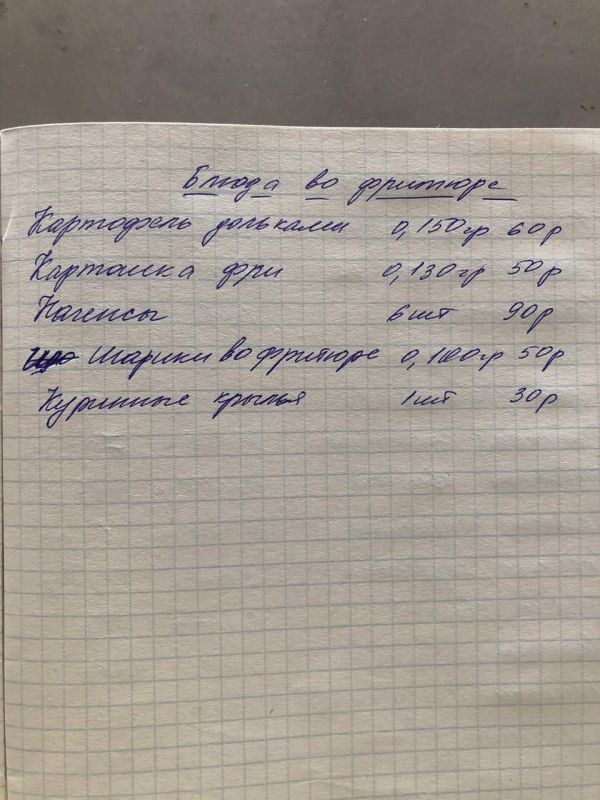 Блюда во фритюре
Картофель дольками 0,150гр 60р
Картошка фри 0,130гр 50р
Нагенсы 6шт 90р
Шарики во фритюре 0,100гр 50р
Куринные крылья 1шт 30р